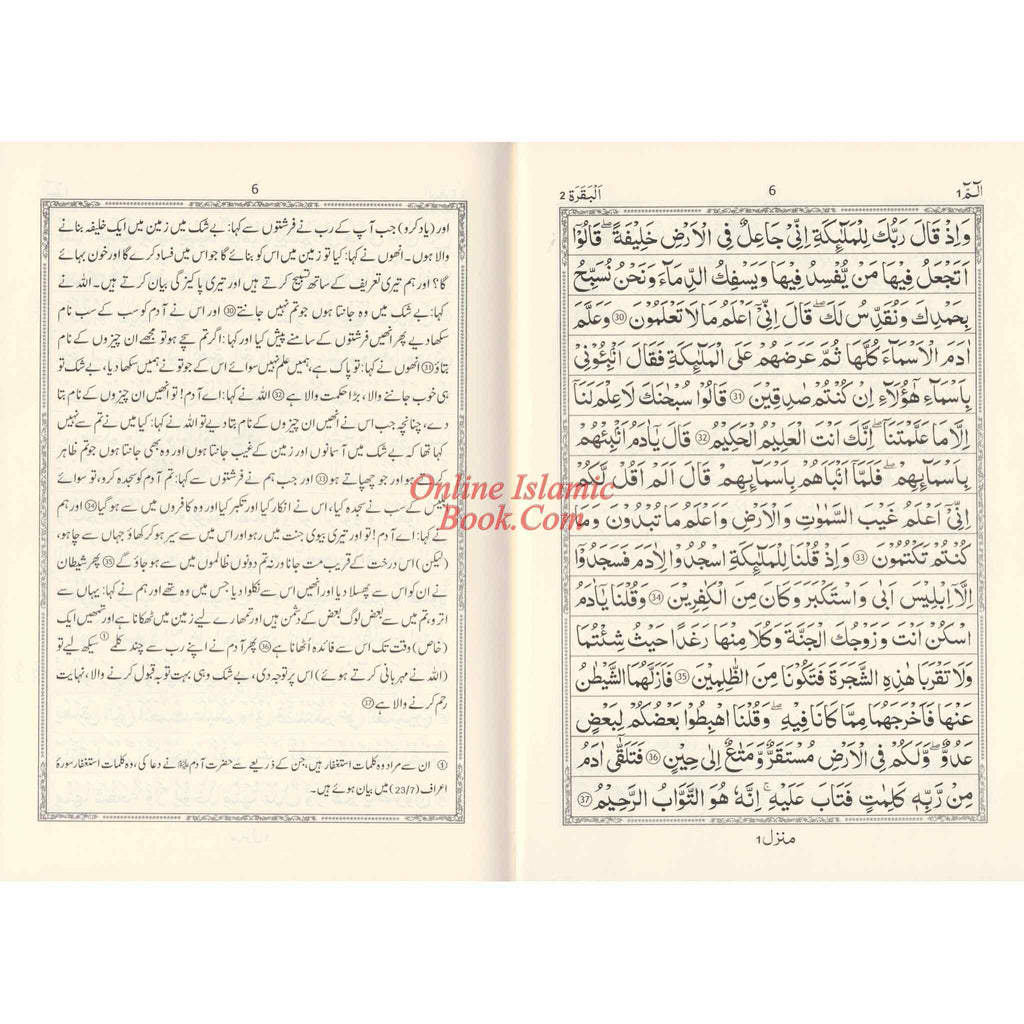 الٓمّٓ ١
6
اَلْبَقَرَة ٢
وَاِذْ قَالَ رَبُّكَ لِلْمَلٰٓئِكَةِ اِنِّيْ جَاعِلٌ فِي الْاَرْضِ خَلِيْفَةً ؕ قَالُوْٓا
اَتَجْعَلُ فِيْهَا مَنْ يُّفْسِدُ فِيْهَا وَيَسْفِكُ الدِّمَآءَ وَنَحْنُ نُسَبِّحُ
بِحَمْدِكَ وَنُقَدِّسُ لَكَ ؕ قَالَ اِنِّيْٓ اَعْلَمُ مَا لَا تَعْلَمُوْنَ ㉚ وَعَلَّمَ
اٰدَمَ الْاَسْمَآءَ كُلَّهَا ثُمَّ عَرَضَهُمْ عَلَى الْمَلٰٓئِكَةِ فَقَالَ اَنْۢبِـُٔوْنِيْ
بِاَسْمَآءِ هٰٓؤُلَآءِ اِنْ كُنْتُمْ صٰدِقِيْنَ ㉛ قَالُوْا سُبْحٰنَكَ لَا عِلْمَ لَنَآ
اِلَّا مَا عَلَّمْتَنَا ؕ اِنَّكَ اَنْتَ الْعَلِيْمُ الْحَكِيْمُ ㉜ قَالَ يٰٓاٰدَمُ اَنْۢبِئْهُمْ
بِاَسْمَآئِهِمْ ۚ فَلَمَّآ اَنْۢبَاَهُمْ بِاَسْمَآئِهِمْ قَالَ اَلَمْ اَقُلْ لَّكُمْ
اِنِّيْٓ اَعْلَمُ غَيْبَ السَّمٰوٰتِ وَالْاَرْضِ وَاَعْلَمُ مَا تُبْدُوْنَ وَمَا
كُنْتُمْ تَكْتُمُوْنَ ㉝ وَاِذْ قُلْنَا لِلْمَلٰٓئِكَةِ اسْجُدُوْا لِاٰدَمَ فَسَجَدُوْٓا
اِلَّآ اِبْلِيْسَ اَبٰى وَاسْتَكْبَرَ وَكَانَ مِنَ الْكٰفِرِيْنَ ㉞ وَقُلْنَا يٰٓاٰدَمُ
اسْكُنْ اَنْتَ وَزَوْجُكَ الْجَنَّةَ وَكُلَا مِنْهَا رَغَدًا حَيْثُ شِئْتُمَا
وَلَا تَقْرَبَا هٰذِهِ الشَّجَرَةَ فَتَكُوْنَا مِنَ الظّٰلِمِيْنَ ㉟ فَاَزَلَّهُمَا الشَّيْطٰنُ
عَنْهَا فَاَخْرَجَهُمَا مِمَّا كَانَا فِيْهِ ۪ وَقُلْنَا اهْبِطُوْا بَعْضُكُمْ لِبَعْضٍ
عَدُوٌّ ۚ وَلَكُمْ فِي الْاَرْضِ مُسْتَقَرٌّ وَّمَتَاعٌ اِلٰى حِيْنٍ ㊱ فَتَلَقّٰٓى اٰدَمُ
مِنْ رَّبِّهٖ كَلِمٰتٍ فَتَابَ عَلَيْهِ ؕ اِنَّهٗ هُوَ التَّوَّابُ الرَّحِيْمُ ㊲
منزل ١
6
اور (یاد کرو) جب آپ کے رب نے فرشتوں سے کہا: بے شک میں زمین میں ایک خلیفہ بنانے
والا ہوں۔ انھوں نے کہا: کیا تو زمین میں اس کو بنائے گا جو اس میں فساد کرے گا اور خون بہائے
گا؟ اور ہم تیری تعریف کے ساتھ تسبیح کرتے ہیں اور تیری پاکیزگی بیان کرتے ہیں۔ اللہ نے
کہا: بے شک میں وہ جانتا ہوں جو تم نہیں جانتے ㉚ اور اس نے آدم کو سب کے سب نام
سکھا دیے پھر انھیں فرشتوں کے سامنے پیش کیا اور کہا: اگر تم سچے ہو تو مجھے ان چیزوں کے نام
بتاؤ ㉛ انھوں نے کہا: تو پاک ہے، ہمیں علم نہیں سوائے اس کے جو تو نے ہمیں سکھا دیا، بے شک تو
ہی خوب جاننے والا، بڑا حکمت والا ہے ㉜ اللہ نے کہا: اے آدم! تو انھیں ان چیزوں کے نام بتا
دے، چنانچہ جب اس نے انھیں ان چیزوں کے نام بتا دیے تو اللہ نے کہا: کیا میں نے تم سے نہیں
کہا تھا کہ بے شک میں آسمانوں اور زمین کے غیب جانتا ہوں اور وہ بھی جانتا ہوں جو تم ظاہر
کرتے ہو اور جو چھپاتے ہو ㉝ اور جب ہم نے فرشتوں سے کہا: تم آدم کو سجدہ کرو، تو سوائے
ابلیس کے سب نے سجدہ کیا، اس نے انکار کیا اور تکبر کیا اور وہ کافروں میں سے ہو گیا ㉞ اور ہم
نے کہا: اے آدم! تو اور تیری بیوی جنت میں رہو اور اس میں سے سیر ہو کر کھاؤ جہاں سے چاہو،
(لیکن) اس درخت کے قریب مت جانا ورنہ تم دونوں ظالموں میں سے ہو جاؤ گے ㉟ پھر شیطان
نے ان کو اس سے پھسلا دیا اور انھیں اس سے نکلوا دیا جس میں وہ تھے اور ہم نے کہا: یہاں سے
اترو، تم میں سے بعض لوگ بعض کے دشمن ہیں اور تمھارے لیے زمین میں ٹھکانا ہے اور تمھیں ایک
(خاص) وقت تک اس سے فائدہ اُٹھانا ہے ㊱ پھر آدم نے اپنے رب سے چند کلمے ① سیکھ لیے تو
(اللہ نے مہربانی کرتے ہوئے) اس پر توجہ دی، بے شک وہی بہت توبہ قبول کرنے والا، نہایت
رحم کرنے والا ہے ㊲
① ان سے مراد وہ کلمات استغفار ہیں، جن کے ذریعے سے حضرت آدم علیہ السلام نے دعا کی، وہ کلمات استغفار سورۂ
اعراف (23/7) میں بیان ہوئے ہیں۔
Online Islamic
Book.Com